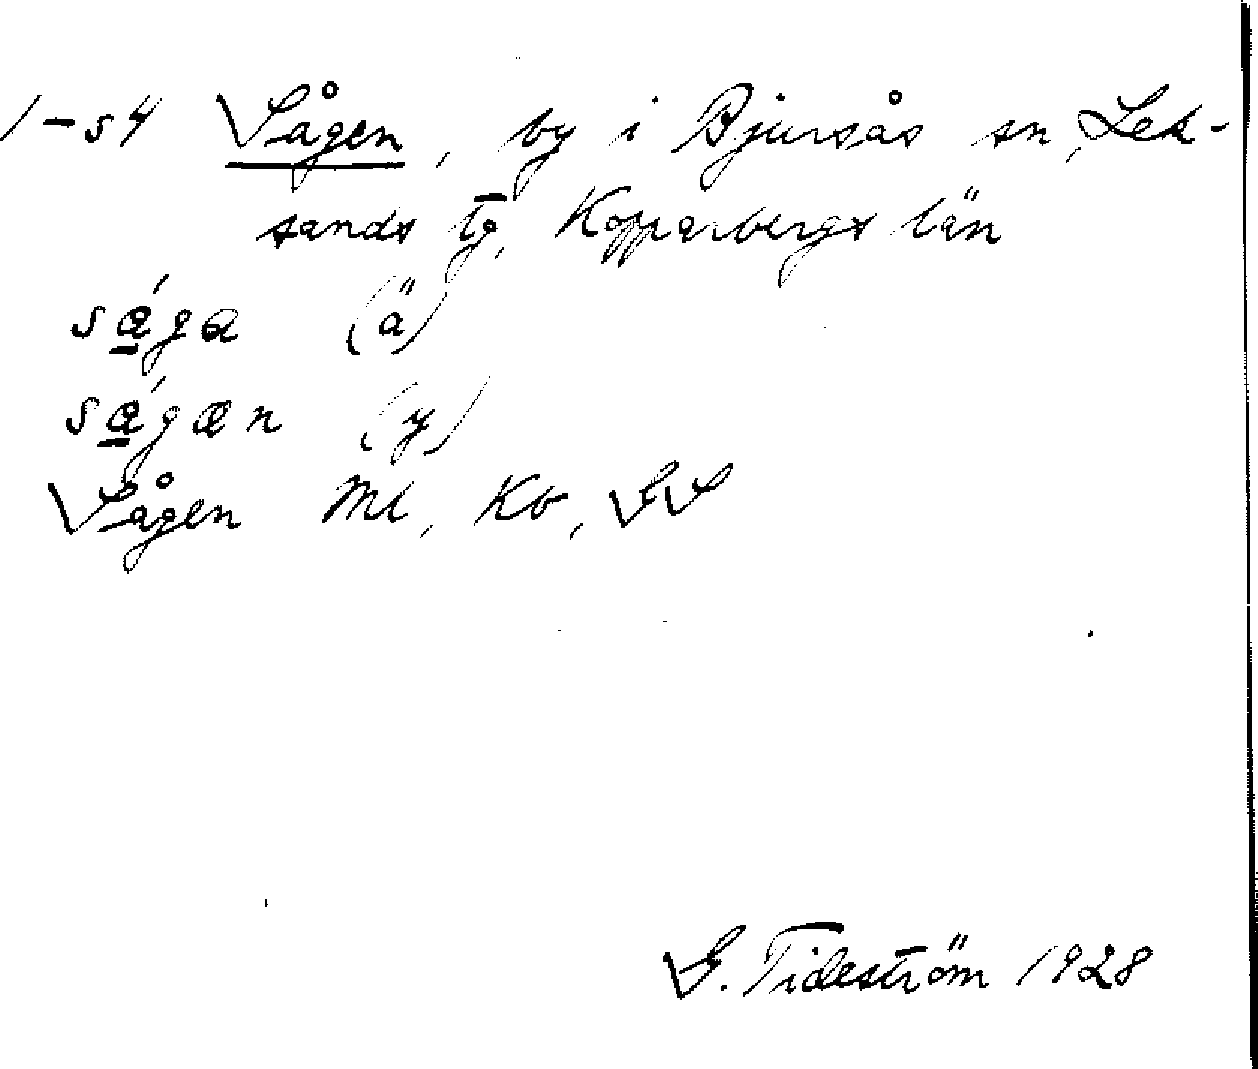 1-s4 Sågen, by i Bjursås sn, Lek-
sands tg, Kopparbergs län
sǽga (ä)
sǽgæn (y)
Sågen Ml, Kb, SS
G. Tideström 1928